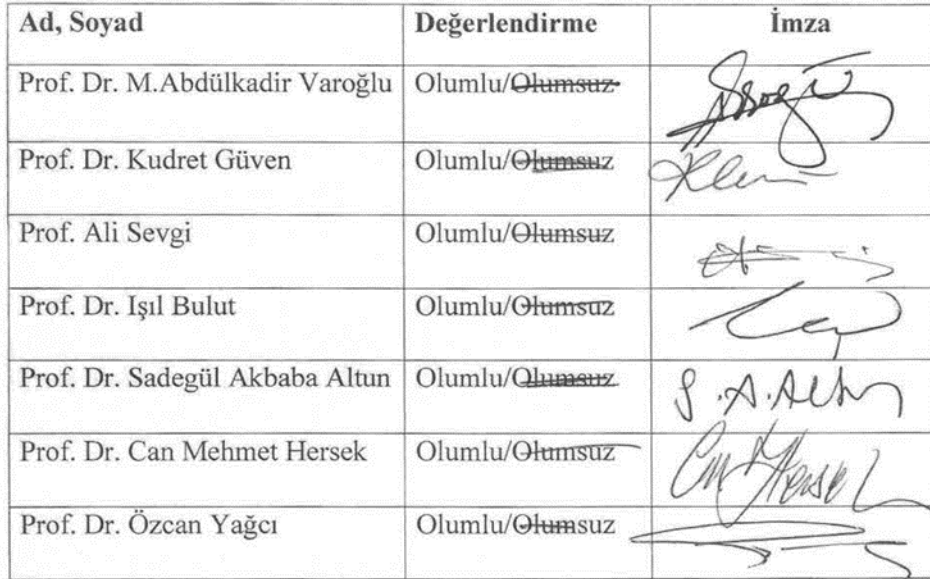 Ad, Soyad Değerlendirme İmza
Prof. Dr. M.Abdülkadir Varoğlu Olumlu/Olumsuz
Prof. Dr. Kudret Güven Olumlu/Olumsuz
Prof. Ali Sevgi Olumlu/Olumsuz
Prof. Dr. Işıl Bulut Olumlu/Olumsuz
Prof. Dr. Sadegül Akbaba Altun Olumlu/Olumsuz S.A.Altun
Prof. Dr. Can Mehmet Hersek Olumlu/Olumsuz
Prof. Dr. Özcan Yağcı Olumlu/Olumsuz